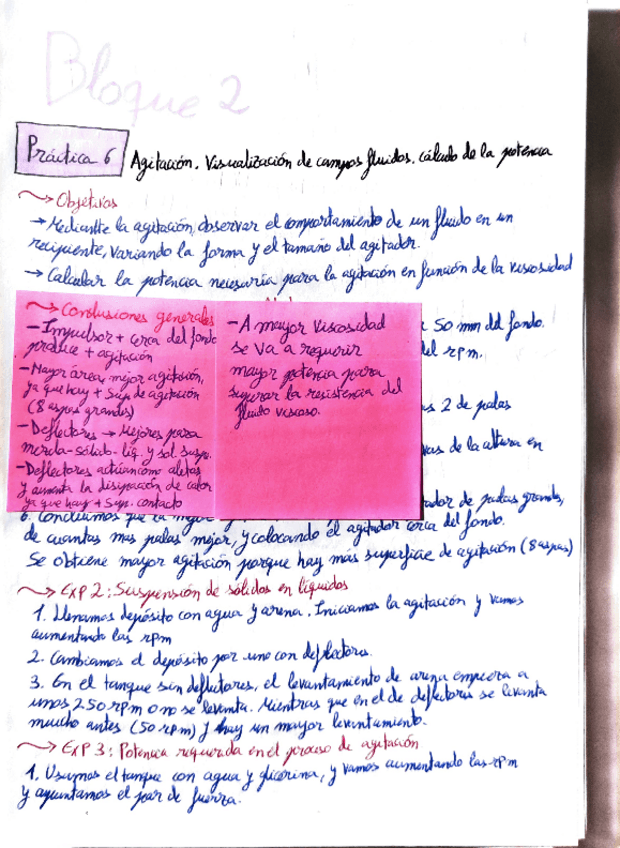 Bloque 2
Práctica 6 Agitación. Visualización de campos fluidos. cálculo de la potencia
Objetivos
→ Mediante la agitación, observar el comportamiento de un fluido en un
recipiente, variando la forma y el tamaño del agitador.
→ Calcular la potencia necesaria para la agitación en función de la viscosidad
Conclusiones generales
- Impulsor + cerca del fondo
produce + agitación
- Mayor área, mejor agitación,
ya que hay + Sup. de agitación
(8 aspas grandes)
- Deflectores → Mejores para
mezcla sólido-líq. y sol. susp.
- Deflectores actúan como aletas
y aumenta la disipación de calor
ya que hay + Sup. contacto
- A mayor Viscosidad
se va a requerir
mayor potencia para
superar la resistencia del
fluido viscoso.
a 50 mm del fondo.
del rpm.
2 de palas
de la altura en
de palas grandes,
6. Concluimos que la
de cuantas mas palas mejor, y colocando el agitador cerca del fondo.
Se obtiene mayor agitación porque hay más superficie de agitación (8 aspas)
EXP 2: Suspensión de sólidos en líquidos
1. Llenamos depósito con agua y arena. Iniciamos la agitación y vamos
aumentando las rpm
2. Cambiamos el depósito por uno con deflectores.
3. En el tanque sin deflectores, el levantamiento de arena empieza a
unos 250 rpm o no se levanta. Mientras que en el de deflectores se levanta
mucho antes (50 rpm) y hay un mayor levantamiento.
EXP 3: Potencia requerida en el proceso de agitación
1. Usamos el tanque con agua y glicerina, y vamos aumentando las rpm
y apuntamos el par de fuerza.